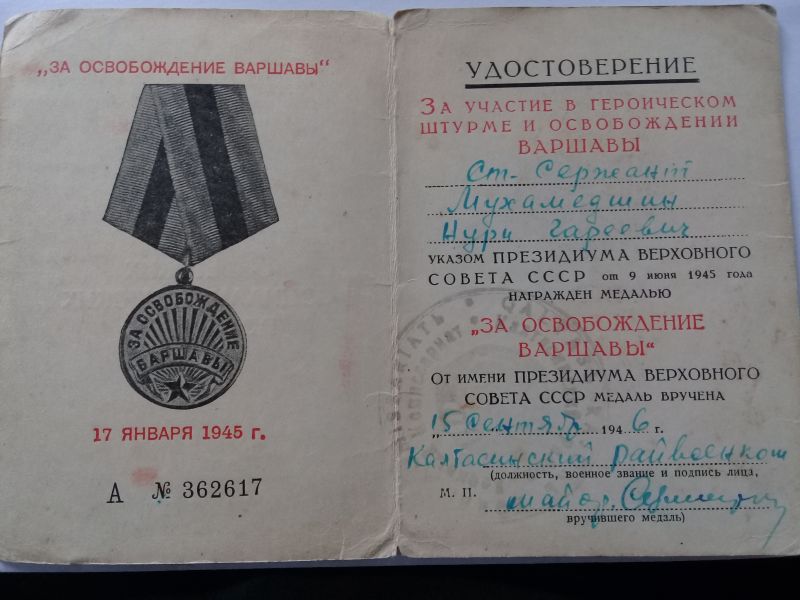 „ЗА ОСВОБОЖДЕНИЕ ВАРШАВЫ"
ЗА ОСВОБОЖДЕНИЕ
ВАРШАВЫ
17 ЯНВАРЯ 1945 г.
А № 362617
УДОСТОВЕРЕНИЕ
ЗА УЧАСТИЕ В ГЕРОИЧЕСКОМ
ШТУРМЕ И ОСВОБОЖДЕНИИ
ВАРШАВЫ
Ст. Сержант
Мухамедшин
Нури Гареевич
УКАЗОМ ПРЕЗИДИУМА ВЕРХОВНОГО
СОВЕТА СССР от 9 июня 1945 года
НАГРАЖДЕН МЕДАЛЬЮ
„ЗА ОСВОБОЖДЕНИЕ
ВАРШАВЫ"
От имени ПРЕЗИДИУМА ВЕРХОВНОГО
СОВЕТА СССР МЕДАЛЬ ВРУЧЕНА
„15 сентябр 1946 г.
Калтасинский райвоенком
(должность, военное звание и подпись лица,
М. П. майор
вручившего медаль)